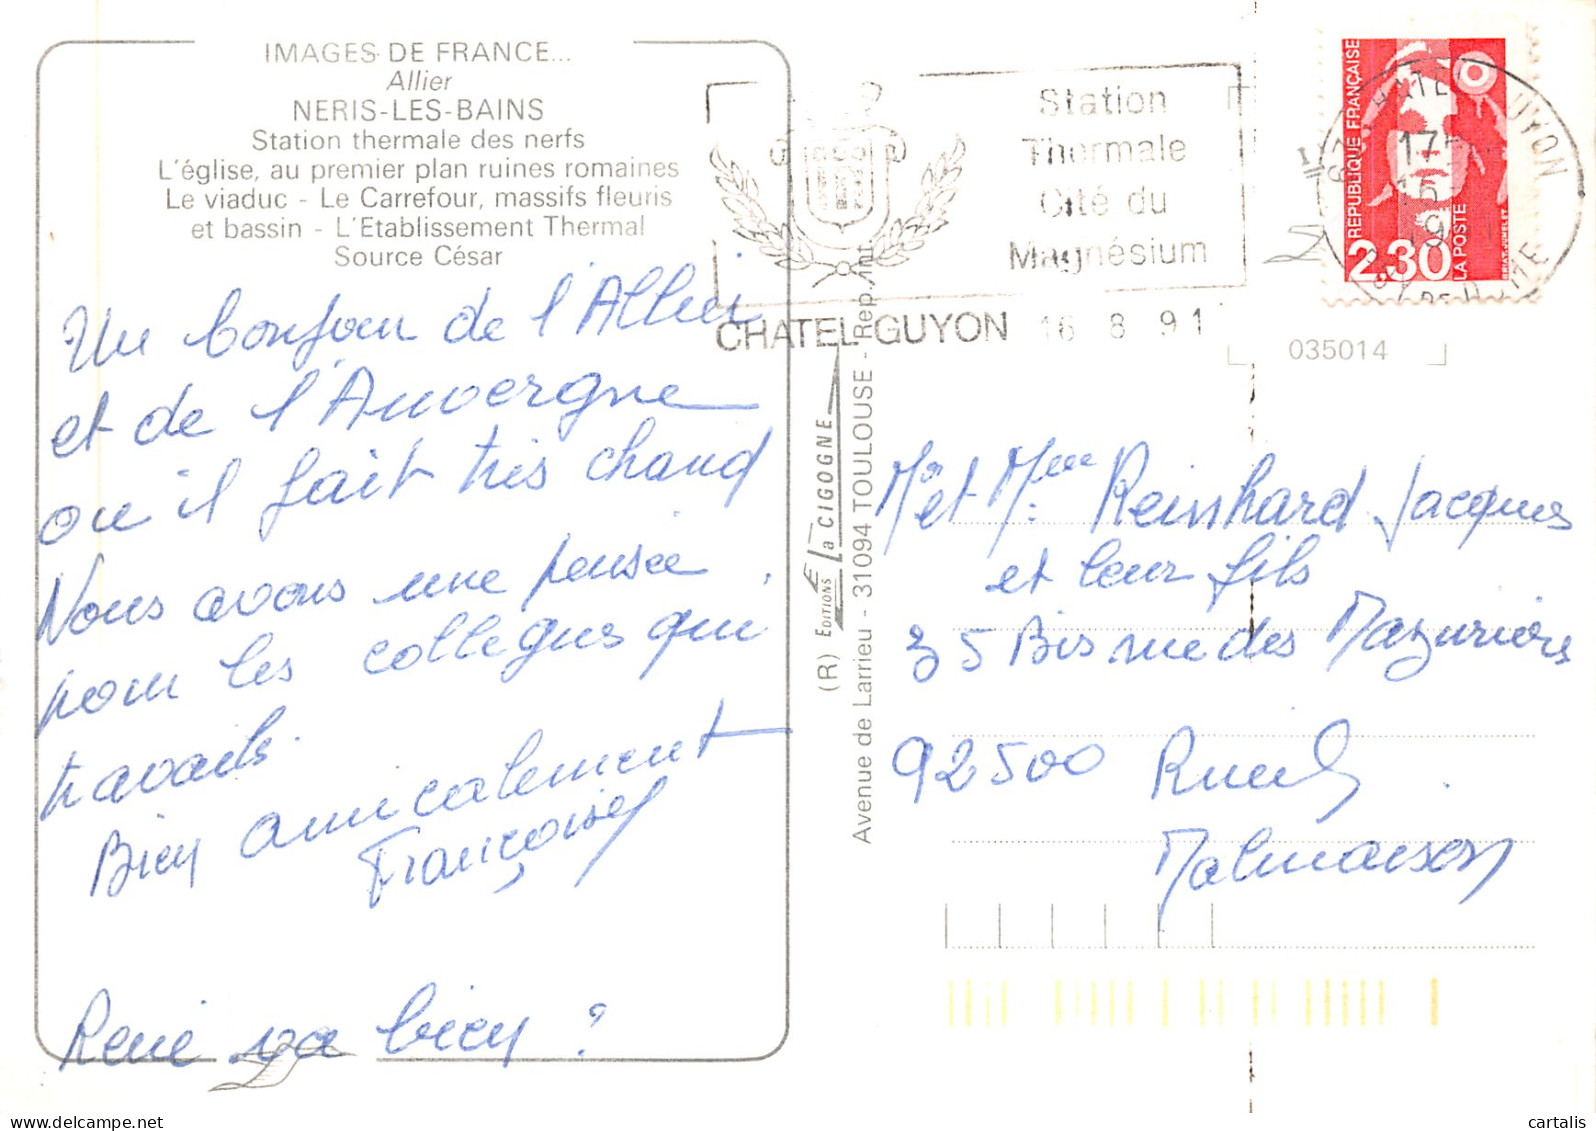 IMAGES DE FRANCE...
Allier
NERIS-LES-BAINS
Station thermale des nerfs
L'église, au premier plan ruines romaines
Le viaduc - Le Carrefour, massifs fleuris
et bassin - L'Etablissement Thermal
Source César
Un bonjour de l'Allier
et de l'Auvergne
ou il fait très chaud
Nous avons une pensée
pour les collegues qui
travails.
Bien amicalement
Françoise
René va bien ?
Station
Thermale
Cité du
Magnésium
CHATEL-GUYON 16 8 91
REPUBLIQUE FRANÇAISE
2,30
LA POSTE
BRIAT-JUMELET
CHATEL GUYON
17
PUY DE DOME
035014
(R) EDITIONS La CIGOGNE
Avenue de Larrieu - 31094 TOULOUSE - Rep. Int.
Mr et Mme Reinhard Jacques
et leur fils
35 Bis rue des Mazurières
92500 Rueil
Malmaison
cartalis
www.delcampe.net